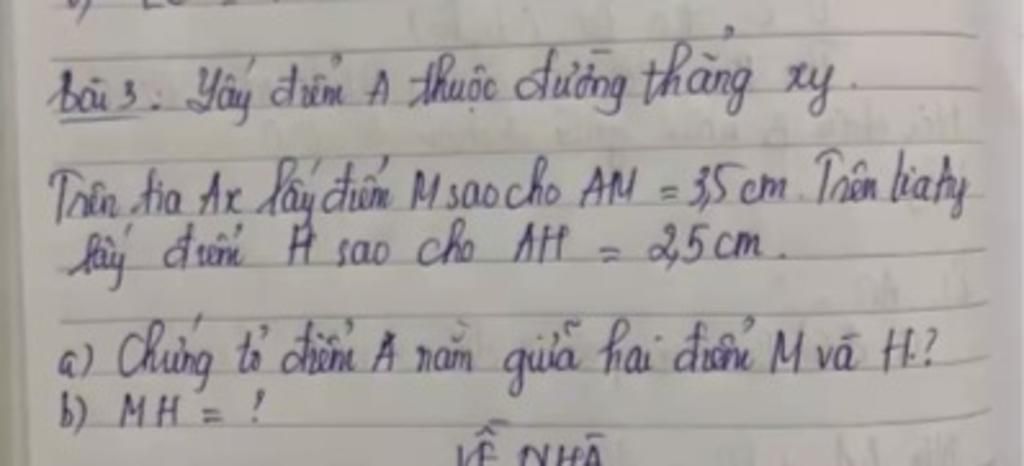 Bài 3: Lấy điểm A thuộc đường thẳng xy.
Trên tia Ax lấy điểm M sao cho AM = 3,5 cm. Trên tia Ay
lấy điểm H sao cho AH = 2,5 cm.
a) Chứng tỏ điểm A nằm giữa hai điểm M và H?
b) MH = ?
VỀ NHÀ